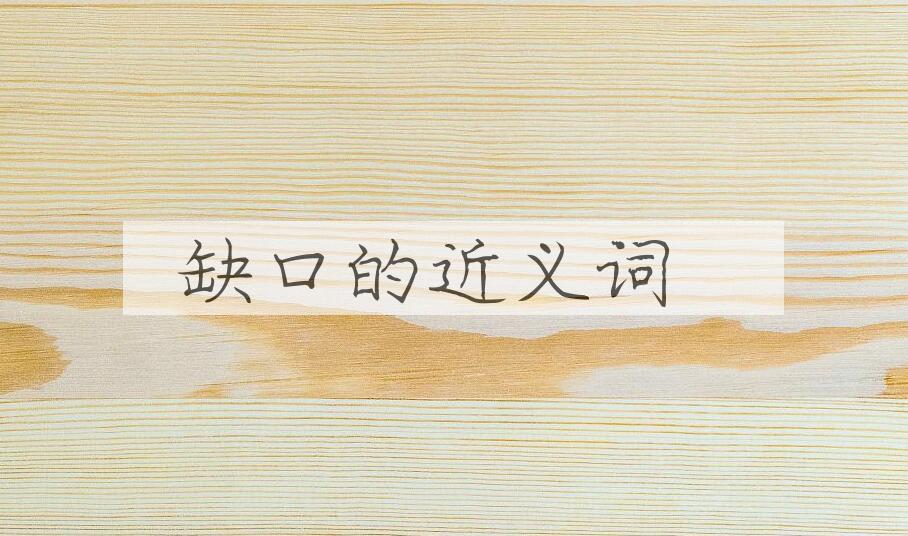 缺口的近义词